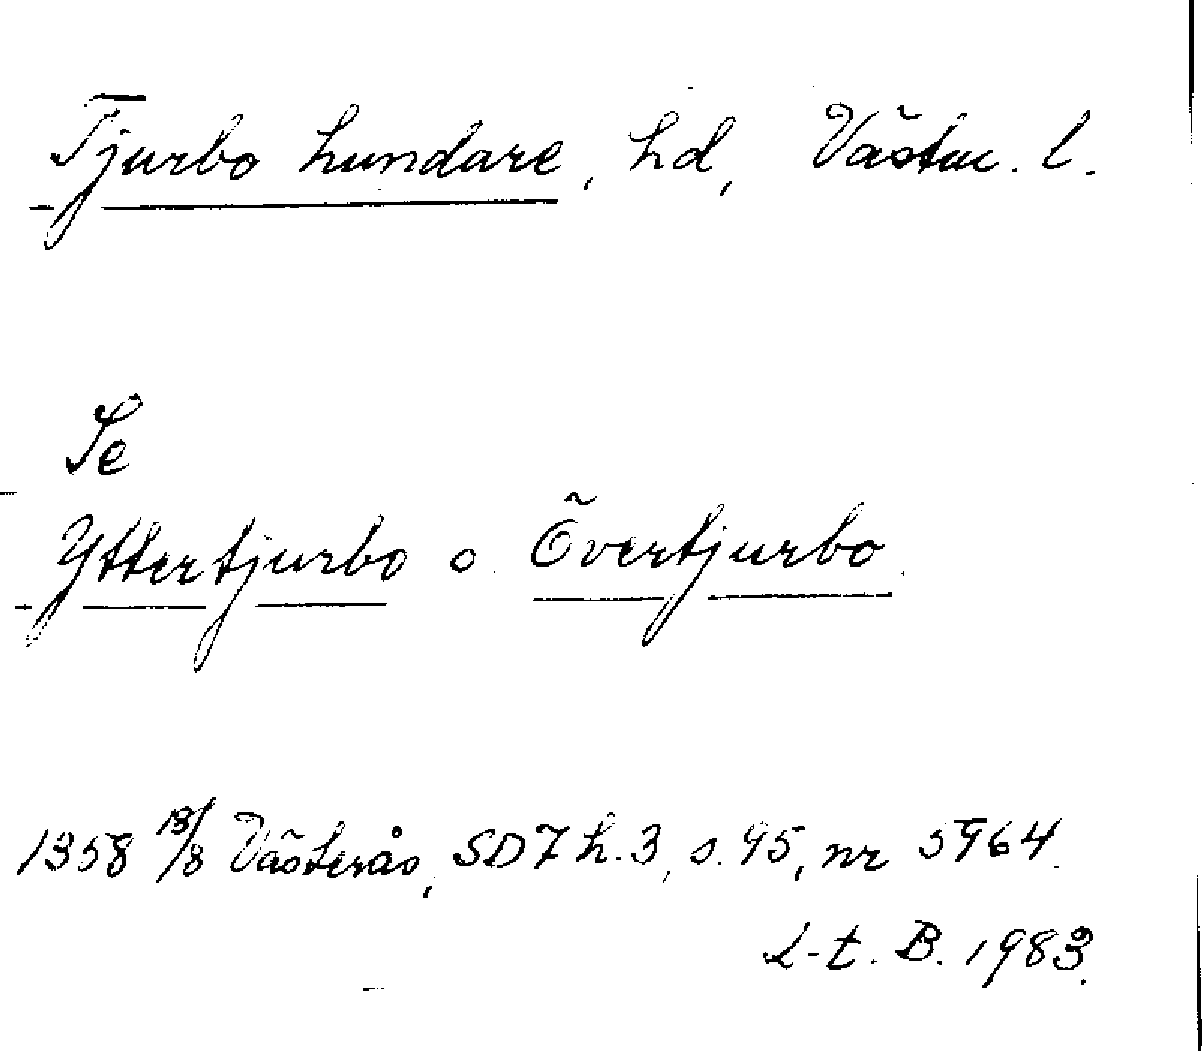 Tjurbo hundare, hd, Västm. l.
Se
Yttertjurbo o. Övertjurbo.
1358 13/8 Västerås, SD 7 h. 3, s. 95, nr 5964.
L-t. B. 1983.